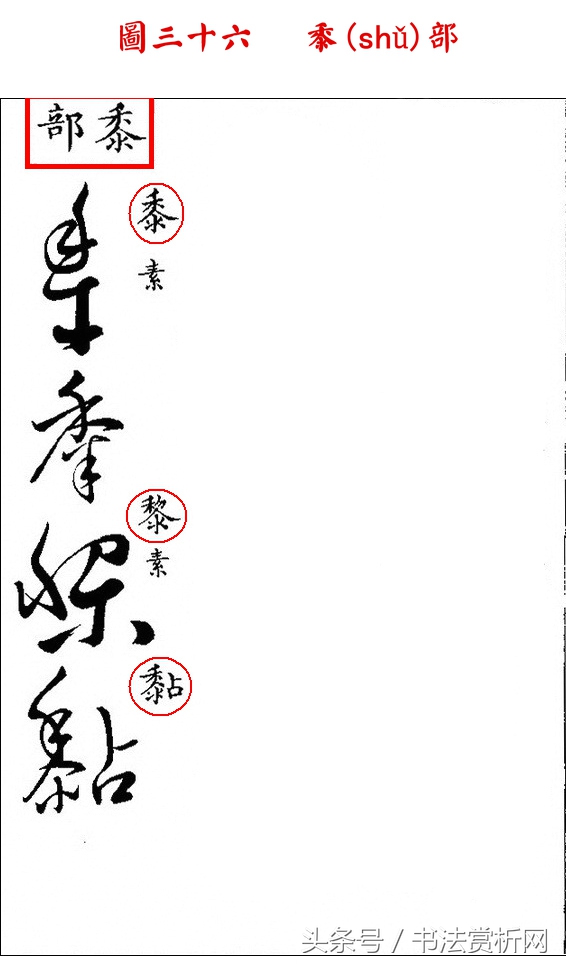 圖三十六 黍(shǔ)部
黍部
黍
素
黎
素
黏
头条号 / 书法赏析网